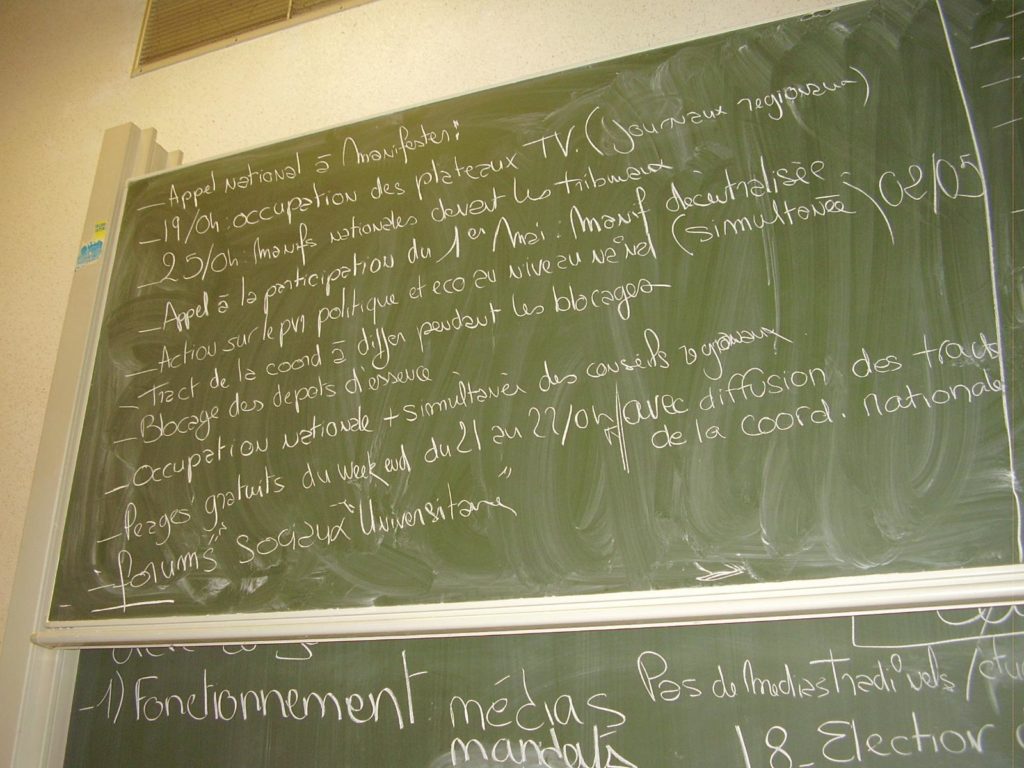 - Appel national à Manifester:
- 19/04: occupation des plateaux TV. (Journaux regionaux)
- 25/04: Manifs nationales devant les tribunaux
- Appel à la participation du 1er Mai: Manif décentralisée
- Action sur le plan politique et eco au niveau nal (simultanée) 02/05
- Tract de la coord à differ pendant les blocages
- Blocage des depots d'essence
- occupation nationale + simultanée des conseils regionaux
- Peages gratuits du week end du 21 au 22/04 avec diffusion des tracts
de la coord. nationale
- "forums" sociaux "Universitaire"
-1) Fonctionnement médias
mandats
Pas de Medias tradi'vels
18- Election